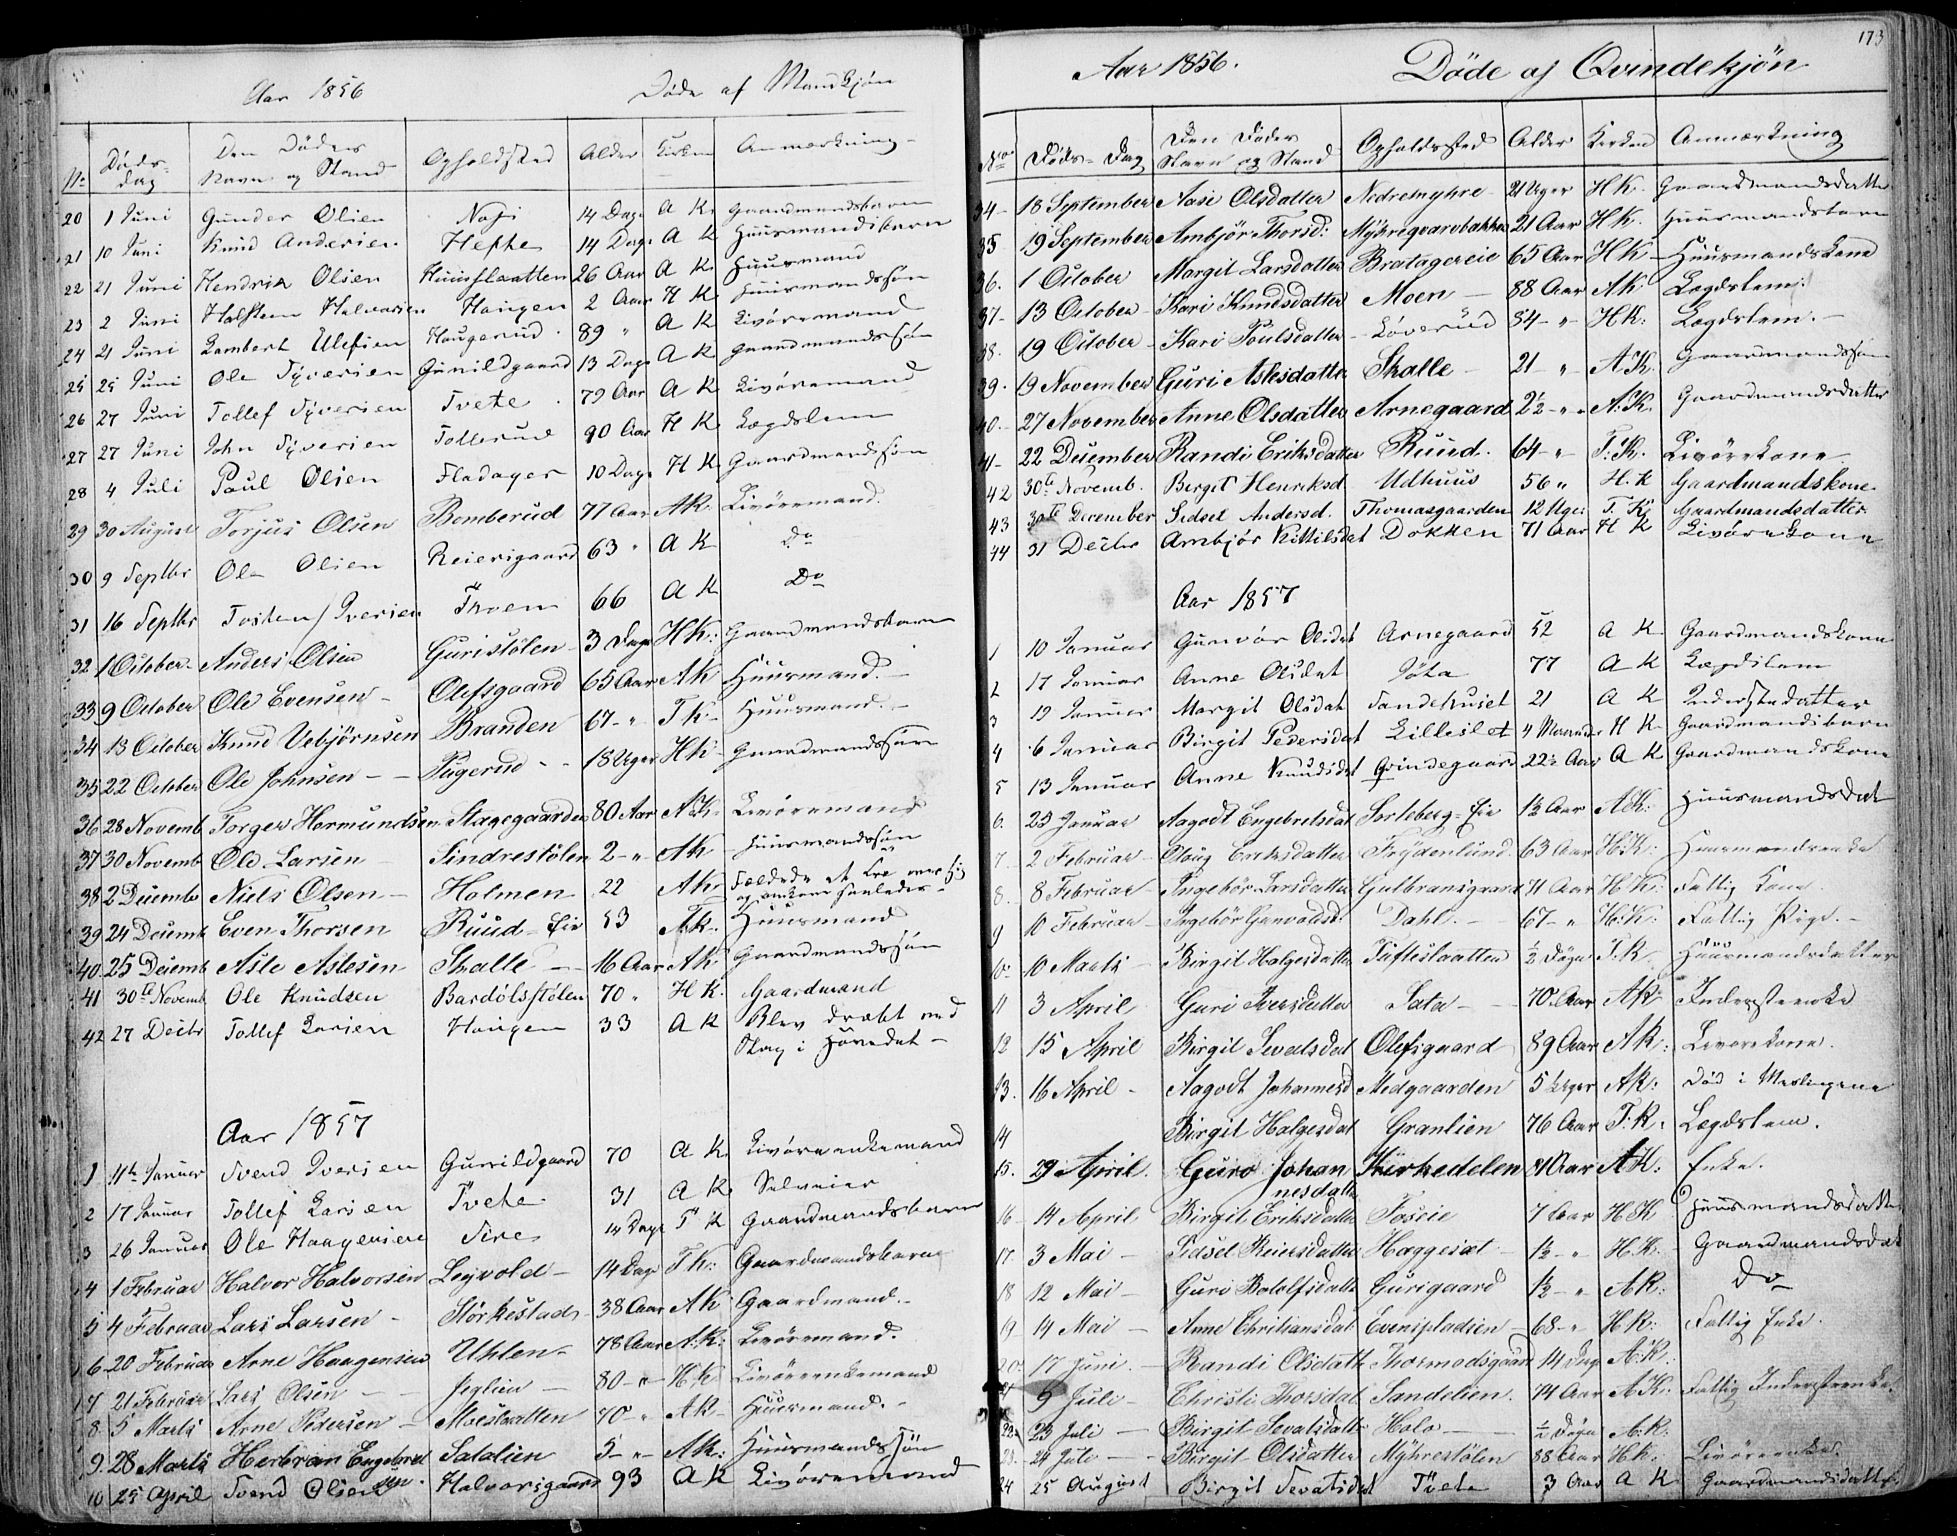 Aar 1856 Døde af Mandkjøn
No Døds-dag Den Dødes Navn og Stand Opholdsted Alder Kirken Anmærkning
20 1 Juni Gunder Olsen 14 Dage A K Gaardmandsbarn
21 10 Juni Knud Andersen Hefte 14 Dage A K Huusmandsbarn
22 21 Juni Hendrik Olsen 26 Aar A K Huusmand
23 2 Juni Holsten Halvorsen Haugen 2 Aar H K Huusmandssøn
24 21 Juni Lambert Ulefsen Haugerud 89 " A K Livøremand
25 25 Juni Ole Syversen Gunildgaard 13 Dage A K Gaardmandssøn
26 27 Juni Tollef Syversen Tvete 79 Aar A K Livøremand
27 27 Juni John Syversen Tollerud 90 Aar H K Lægdslem
28 4 Juli Paul Olsen Fladager 10 Dage H K Gaardmandssøn
29 30 August Torjus Olsen Bomberud 77 Aar A K. Livøremand.
30 9 Septbr Ole Olsen Reiersgaard 63 " A K Do
31 16 Septbr Tosten Iversen Thoen 66 A K Do
32 1 October Anders Olsen Guristølen 3 Dage H K: Gaardmandsbarn
33 9 October Ole Evensen Olefsgaard 65 Aar A K Huusmand.
34 13 October Knud Vebjørnsen Branden 67 " T K Huusmand.
35 22 October Ole Johnsen 18 Uger H K Gaardmandssøn
36 28 Novemb Torger Hermundsen Stagegaarden 80 Aar A K Livøremand
37 30 Novemb Ole Larsen Sindrestølen 2 " A K Huusmandssøn
38 2 Decemb Niels Olsen Holmen 22 A K Fældede et Træ over sig
39 24 Decemb Even Thorsen Ruud-Eie 53 T K. Huusmand
40 25 Decemb Asle Aslesen Skalle 16 Aar A K Gaardmandssøn
41 30te Novemb. Ole Knudsen Bardølsstølen 70 " H K. Gaardmand
42 27 Decbr Tollef Larsen Haugen 33 A K Blev dræbt ved
Slag i Hovedet
Aar 1857
1 11te Januar Svend Iversen Gunildgaard 70 A K Livøreenkemand
2 17 Januar Tollef Larsen Tvete 31 A K Selveier
3 26 Januar Ole Haagensen 14 Dage T K Gaardmandsbarn
4 1 Februar Halvor Halvorsen Leqvold 14 Dage T K: Gaardmandsbarn
5 4 Februar Lars Larsen Størkestad 38 Aar A K Gaardmand.
6 20 Februar Arne Haagensen Uhlen 78 Aar A. K: Livøremand.
7 21 Februar Lars Olsen Jeglien 80 " H K Livøreenkemand
8 5 Marts Arne Pedersen Moeslaatten 70 " A K Huusmand.
9 28 Marts Herbran Engebretsen Salalien 5 " A K: Huusmandssøn
10 25 April Svend Olsen Halvorsgaard 93 A K Livøremand
173
Aar 1856. Døde af Qvindekjøn
No Døds-Dag Den Dødes Navn og Stand Opholdssted Alder Kirken Anmærkning
34 18 September Aase Olsdatter Nedremyhre 21 Uger H K. Gaardmandsdatter
35 19 September Ambjør Thorsd: Myhregaardbakken 21 Aar H K. Huusmandsbarn
36. 1 October Margit Larsdatter Bratagereie 65 Aar H K Huusmandskone
37 13 October Kari Knudsdatter Moen 88 Aar A K Lægdslem.
38. 19 October Kari Poulsdatter Løverud 84 " H K: Lægdslem.
39. 19 November Guri Aslesdatter Skalle 21 " A K. Gaardmandssøn
40. 27 November Anne Olsdatter Arnegaard 2½ " A. K. Gaardmandsdatter
41 22 December Randi Eriksdatter Ruud. 64 " T. K. Livørekone
42 30te Novemb. Birgit Henriksd Udhuus 56 " H. K Gaardmandskone
43 30te December Sidsel Andersd. Thomasgaarden 12 Uger T. K. Gaardmandsdatter
44 31 Decbr Ambjør Kittilsdat Dokken 71 Aar H K Livørekone
Aar 1857
1 10 Januar Gunvor Olsdat Arnegaard 52 A K Gaardmandskone
2 17 Januar Anne Olsdat 77 A K Lægdslem
3 19 Januar Margit Olsdat Sandehuset 21 A K Inderstedatter
4 6 Januar Birgit Pedersdat Lilleslet 4 Maaneder H K Gaardmandsbarn
5 13 Januar Anne Knudsdat Grindegaard 22½ Aar A K Gaardmandskone
6. 23 Januar Aagodt Engebretsdat Sorteberg-Eie 1½ Aar A. K: Huusmandsdat
7. 2 Februar Olaug Eriksdatter Frydenlund 63 Aar H. K: Huusmandsenke
8. 8 Februar Ingebør Larsdatter Gulbransgaard 71 Aar H K: Fattig Kone.
9 10 Februar Ingebør Gunvaldsd. Dahl. 67 " H. K: Fattig Pige.
10 10 Marts Birgit Halgesdatter Tufteslaatten ½ Døgn T. K. Huusmandsdatter
11 3 April Guri Iversdatter Sata 70 Aar A K: Inderstenke
12 15 April Birgit Sevatsdat Olefsgaard 89 Aar A K: Livørekone.
13. 16 April Aagodt Johannesd Medgaarden 5 Uger A K: Død i Meslingene
14 Birgit Halgesdat Grønlien 76 Aar T. K: Lægdslem.
15. 29 April. Guro Johannesdatter Kirkedelen 81 Aar A K: Enke.
16 14 April Birgit Eriksdatter Foseie 7 Aar H K Huusmandsdatter
17. 3 Mai Sidsel Reiersdatter Haggeset 1½ " H K. Gaardmandsdat
18 12 Mai Guri Botolfsdatter Gurigaard 1½ " A K: Do
19 14 Mai Anne Christiansdat Evenspladsen 68 " H K: Fattig Enke.
20 17 Juni Randi Olsdatter Thormodsgaard 14 Dage A. K:
21 9 Juli Christi Thorsdat Sandelien. 74 Aar A. K: Fattig Inderstenke.
22 23 Juli Birgit Sevatsdatter Holo ½ Døgn A. K.
23. 24 Juli Birgit Olsdatter Myhrestølen 88 Aar H K: Livøreenke
24 25 August Birgit Sevatsdat Tvete 3 Aar A K Gaardmandsdatter